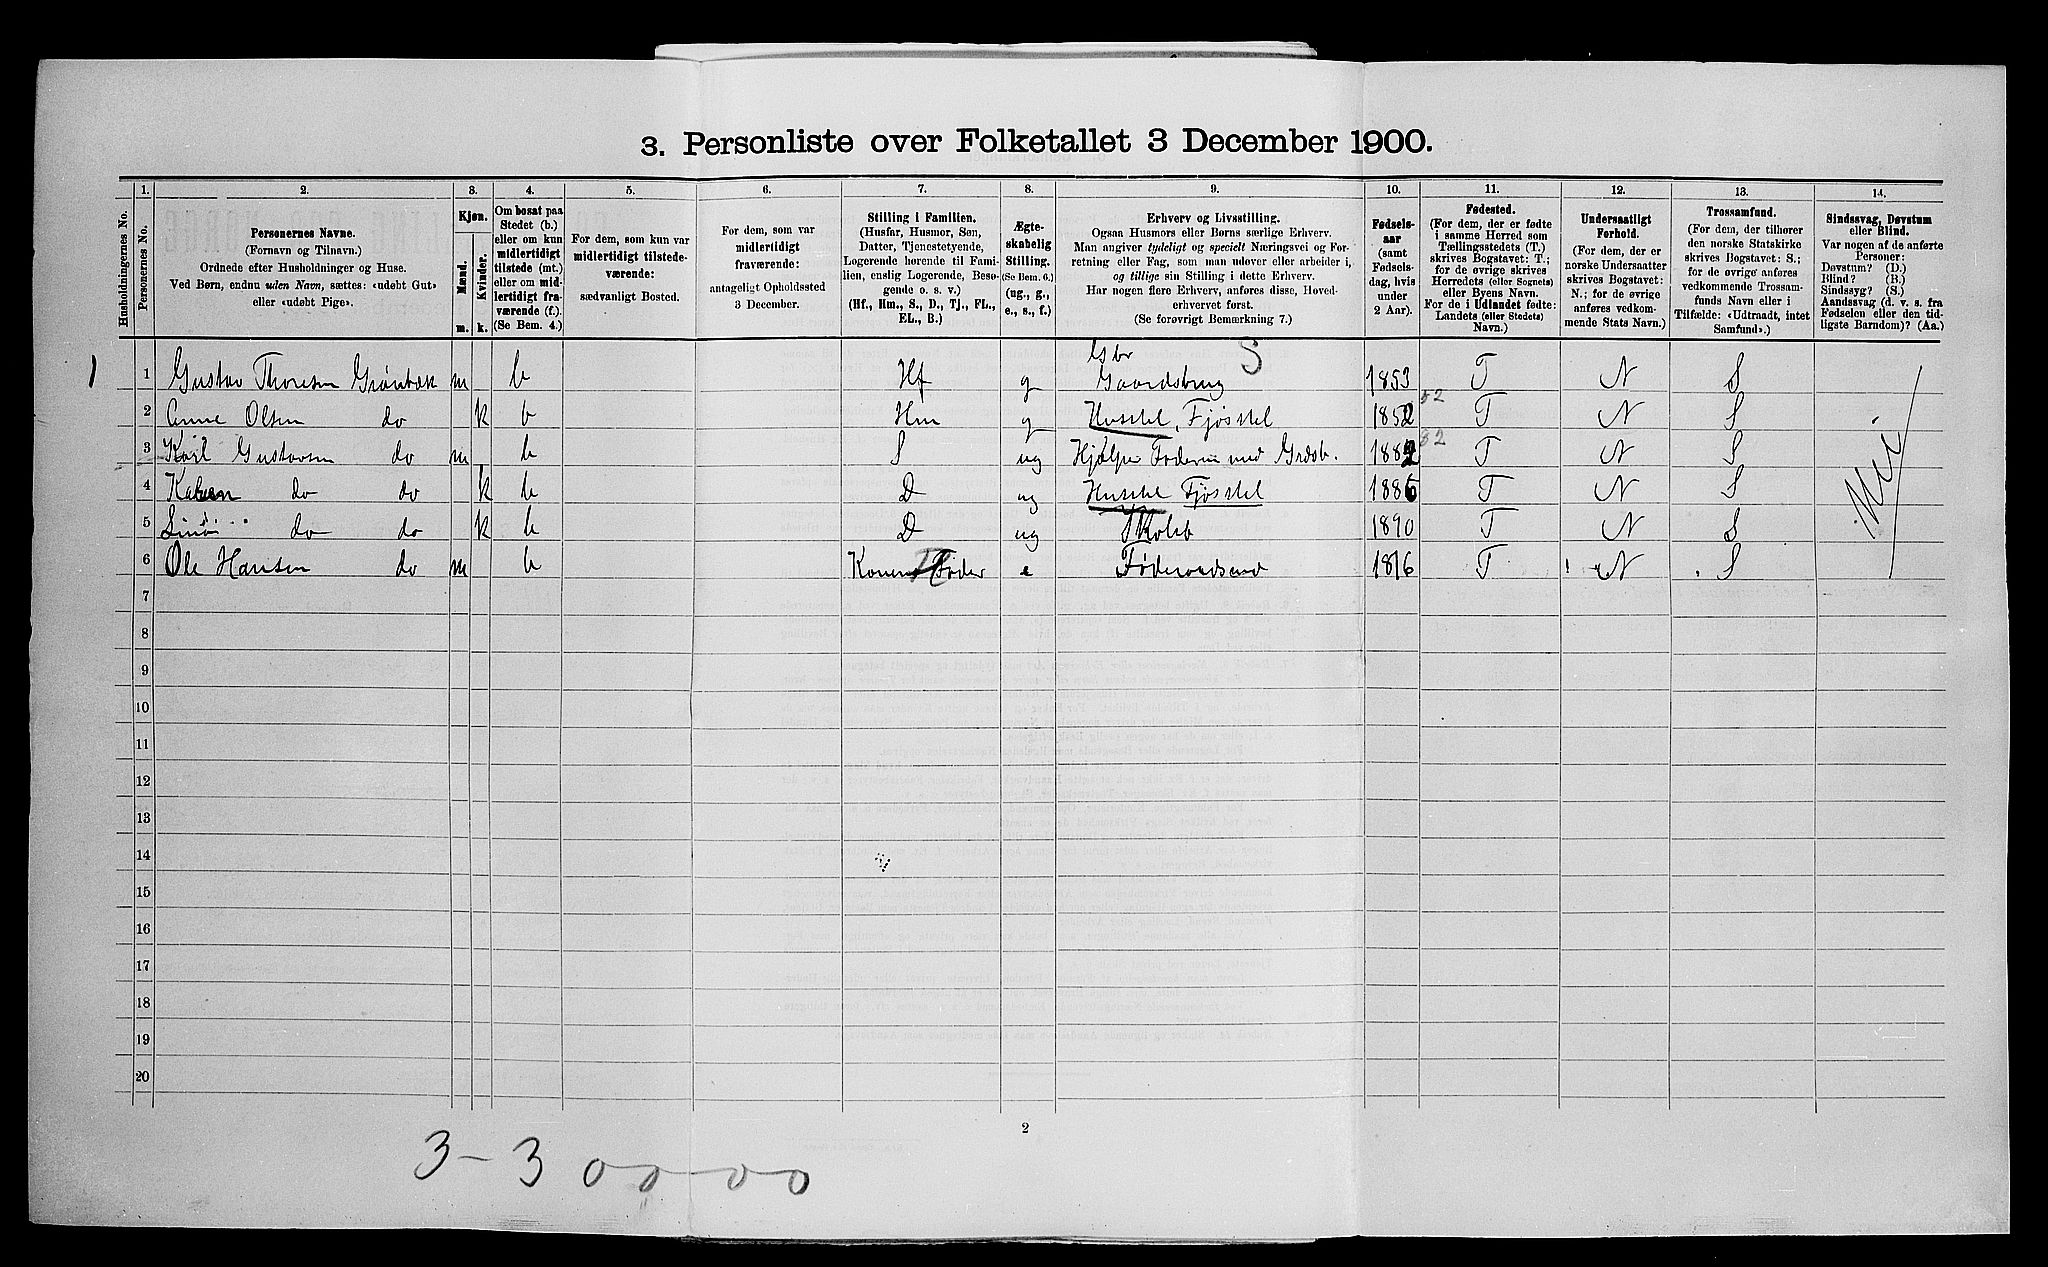 3. Personliste over Folketallet 3 December 1900.
Husholdningernes No.
1.
Personernes No.
2.
Personernes Navne.
(Fornavn og Tilnavn.)
Ordnede efter Husholdninger og Huse.
Ved Børn, endnu uden Navn, sættes: «udøbt Gut»
eller «udøbt Pige».
3.
Kjøn.
Mænd.
Kvinder.
m. k.
4.
Om bosat paa
Stedet (b.)
eller om kun
midlertidigt
tilstede (mt.)
eller om mid-
lertidigt fra-
værende (f.).
(Se Bem. 4.)
5.
For dem, som kun var
midlertidigt tilstede-
værende:
sædvanligt Bosted.
6.
For dem, som var
midlertidigt
fraværende:
antageligt Opholdssted
3 December.
7.
Stilling i Familien.
(Husfar, Husmor, Søn,
Datter, Tjenestetyende,
Logerende hørende til Fami-
lien, enslig Logerende, Besø-
gende o. s. v.)
(Hf., Hm., S., D., Tj., FL.,
EL., B.)
8.
Ægte-
skabelig
Stilling.
(Se Bem. 6.)
(ug., g.,
e., s., f.)
9.
Erhverv og Livsstilling.
Ogsaa Husmors eller Børns særlige Erhverv.
Man angiver tydeligt og specielt Næringsvei og For-
retning eller Fag, som man udøver eller arbeider i,
og tillige sin Stilling i dette Erhverv.
Har nogen flere Erhverv, anføres disse, Hoved-
erhvervet først.
(Se forøvrigt Bemærkning 7.)
10.
Fødsels-
aar
(samt
Fødsels-
dag, hvis
under
2 Aar).
11.
Fødested.
(For dem, der er fødte
i samme Herred som
Tællingsstedets (T.)
skrives Bogstavet: T.;
for de øvrige skrives
Herredets (eller Sognets)
eller Byens Navn.
For de i Udlandet fødte:
Landets (eller Stedets)
Navn.)
12.
Undersaatligt
Forhold.
(For dem, der er
norske Undersaatter
skrives Bogstavet:
N.; for de øvrige
anføres vedkom-
mende Stats Navn.)
13.
Trossamfund.
(For dem, der tilhører
den norske Statskirke
skrives Bogstavet: S.;
for de øvrige anføres
vedkommende Trossam-
funds Navn eller i
Tilfælde: «Udtraadt, intet
Samfund».)
14.
Sindssvag, Døvstum
eller Blind.
Var nogen af de anførte
Personer:
Døvstum? (D.)
Blind? (B.)
Sindssyg? (S.)
Aandssvag (d. v. s. fra
Fødselen eller den tid-
ligste Barndom)? (Aa.)
Gbr S
1 1 Gustav Thoresen Grönbæk m b Hf g Gaardsbrug 1853 T N S
2 Anne Olsen do k b Hm g Husstel, Fjøsstel 1852 52 T N S
3 Karl Gustavsen do m b S ug Hjælper Faderen med Grdsb. 1882 82 T N S
4 Karen do do k b D ug Husstel Fjøsstel 1886 T N S
5 do do k b D ug Skoleb 1890 T N S
6 Ole Hansen do m b Konens Fader e Føderaadsmd 1816 T N S
Nei
7
8
9
10
11
12
13
14
15
16
17
18
19
20
2
3 - 3 00-00